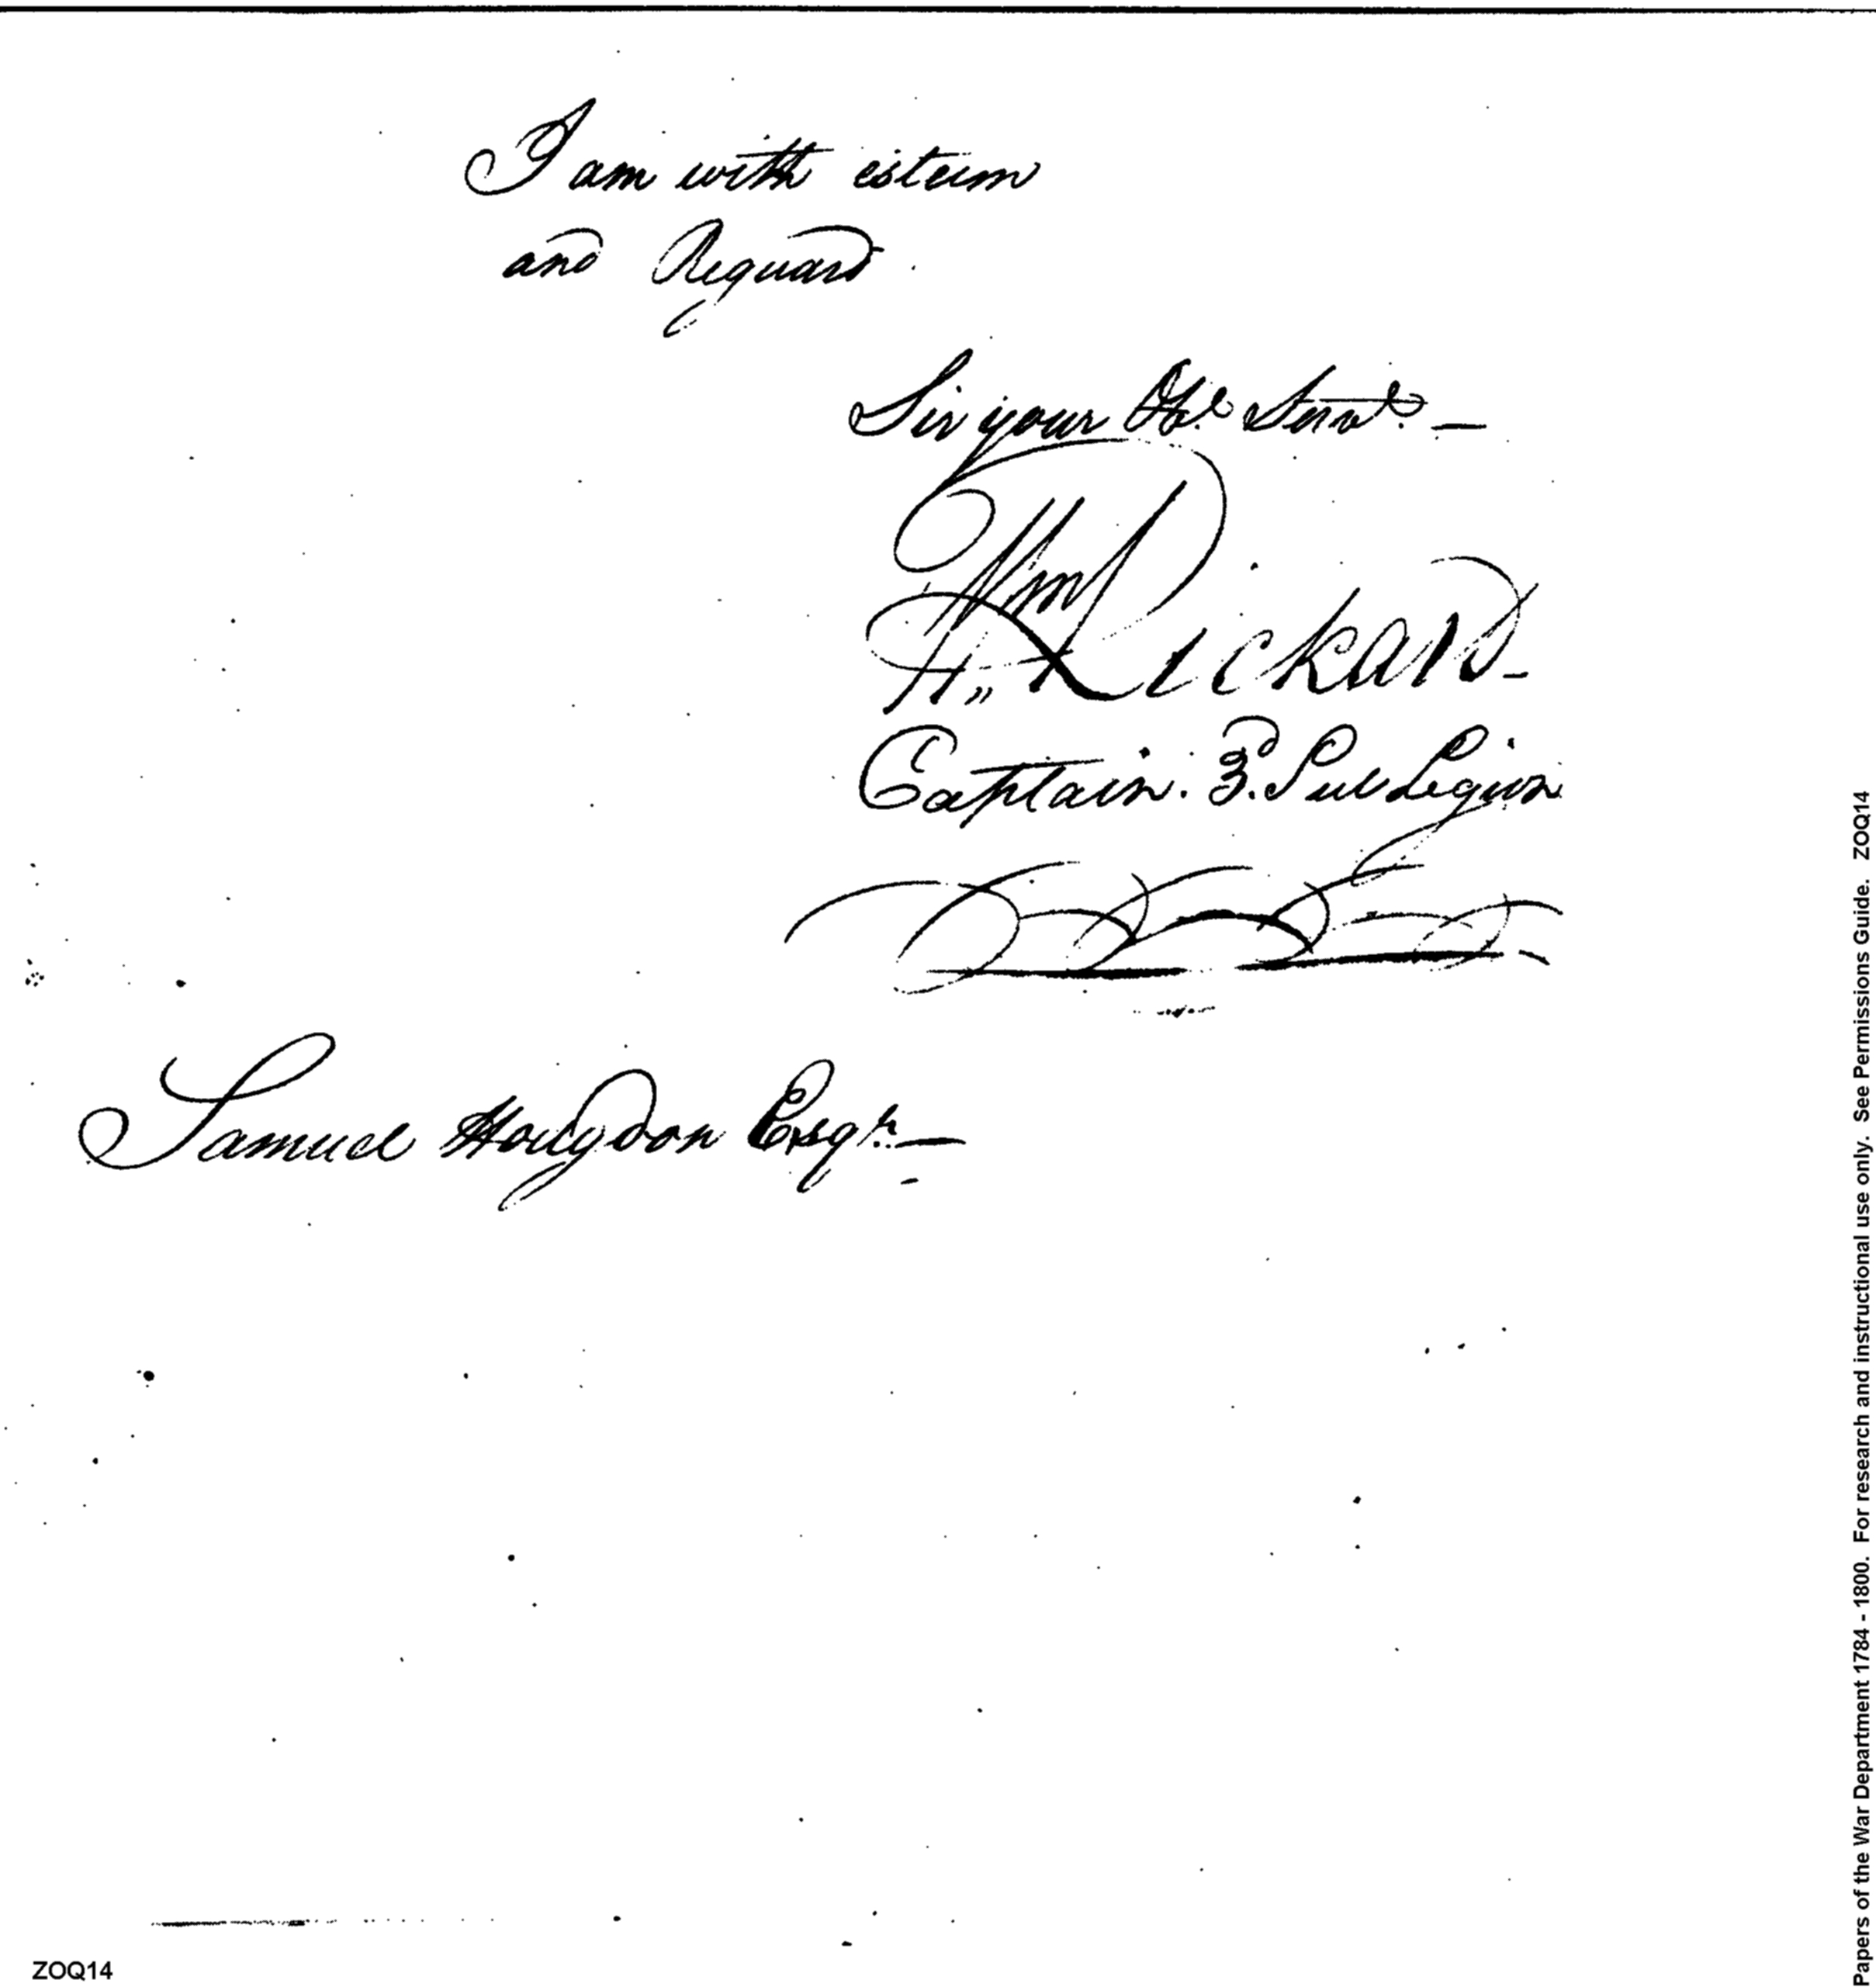 I am with esteem
and Reguard
Sir your Obl. Servt. —
Wm Rickard
Captain. 3d. Sub Legion
Samuel Hodgdon Esqr. —
ZOQ14
Papers of the War Department 1784 - 1800. For research and instructional use only. See Permissions Guide. ZOQ14